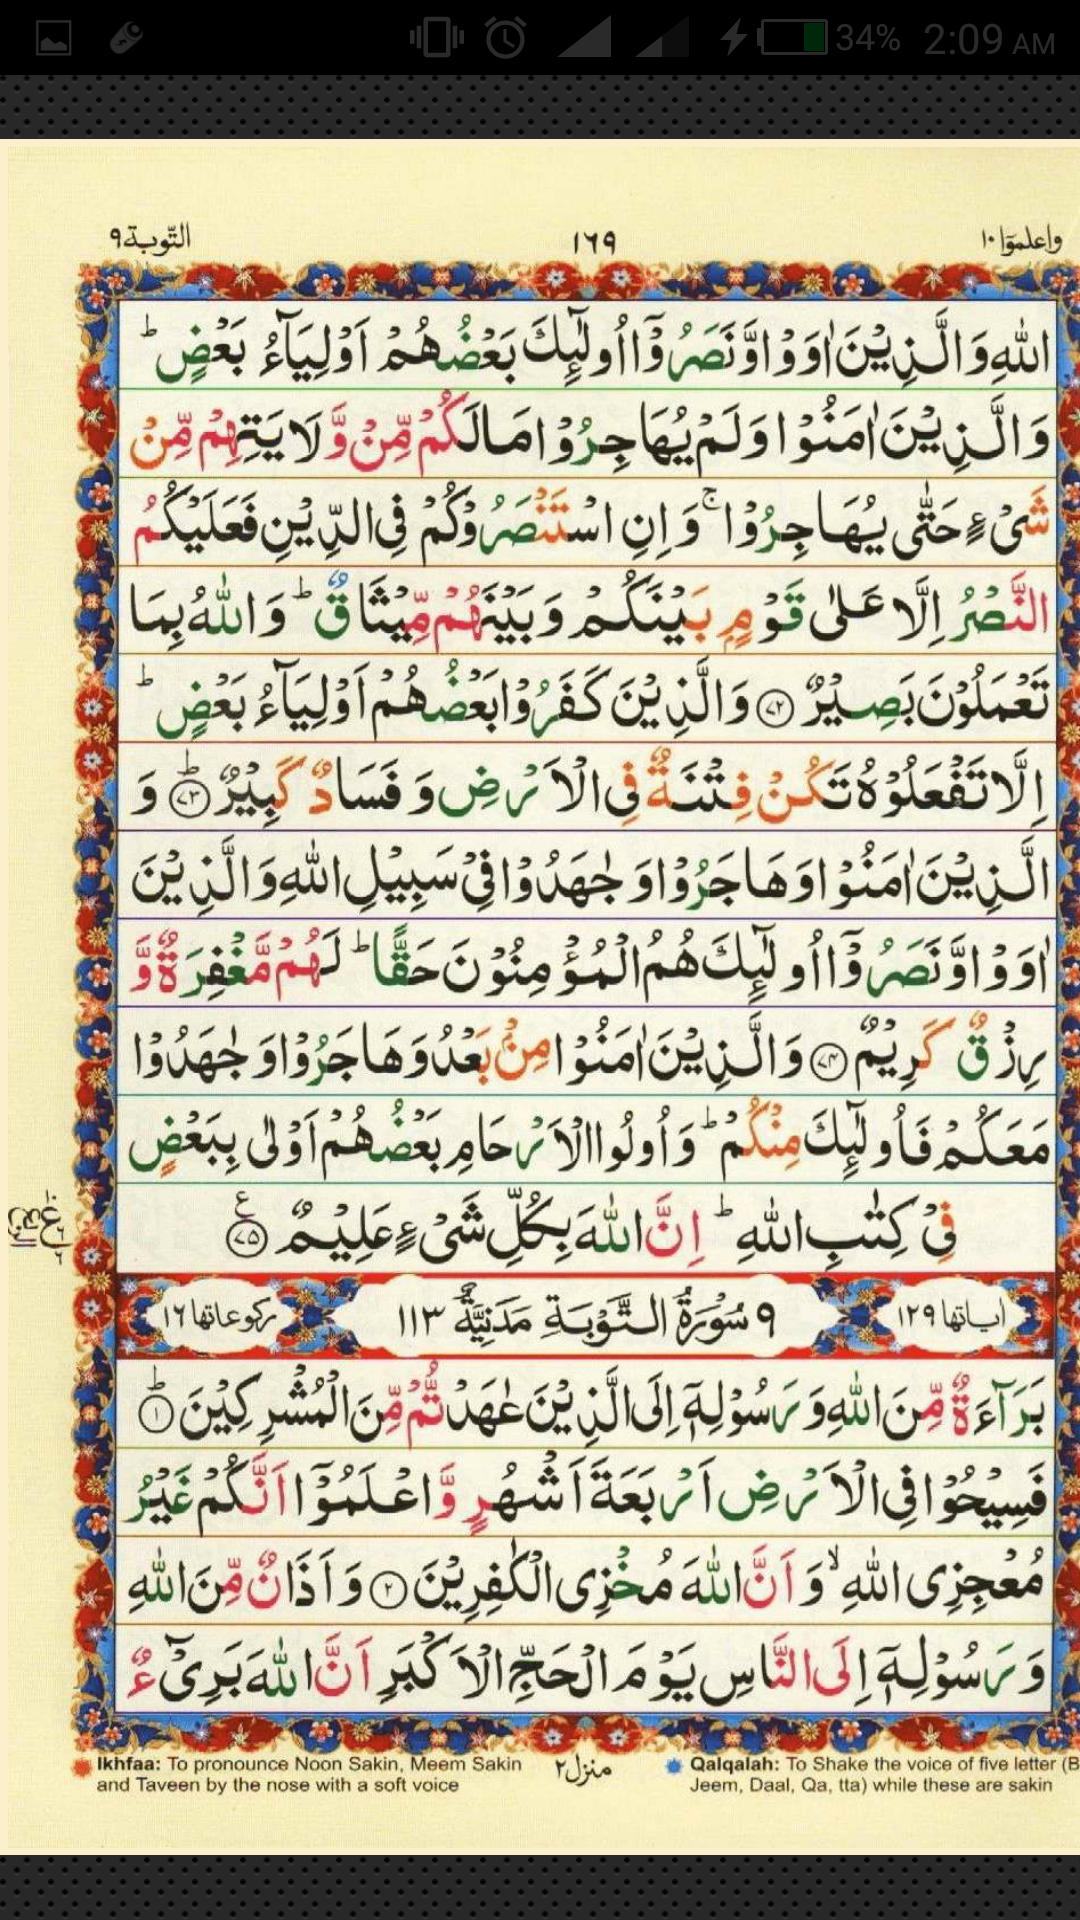 34% 2:09 AM
واعلموٓا۱۰ ۱۶۹ التّوبة۹
اللّٰهِ وَالَّذِيْنَ اٰوَوْا وَّنَصَرُوْٓا اُولٰٓئِكَ بَعْضُهُمْ اَوْلِيَآءُ بَعْضٍ ؕ
وَالَّذِيْنَ اٰمَنُوْا وَلَمْ يُهَاجِرُوْا مَا لَكُمْ مِّنْ وَّلَايَتِهِمْ مِّنْ
شَىْءٍ حَتّٰى يُهَاجِرُوْا ۚ وَاِنِ اسْتَنْصَرُوْكُمْ فِى الدِّيْنِ فَعَلَيْكُمُ
النَّصْرُ اِلَّا عَلٰى قَوْمٍ بَيْنَكُمْ وَبَيْنَهُمْ مِّيْثَاقٌ ؕ وَاللّٰهُ بِمَا
تَعْمَلُوْنَ بَصِيْرٌ ۷۲ وَالَّذِيْنَ كَفَرُوْا بَعْضُهُمْ اَوْلِيَآءُ بَعْضٍ ؕ
اِلَّا تَفْعَلُوْهُ تَكُنْ فِتْنَةٌ فِى الْاَرْضِ وَفَسَادٌ كَبِيْرٌ ؕ ۷۳ وَ
الَّذِيْنَ اٰمَنُوْا وَهَاجَرُوْا وَجٰهَدُوْا فِىْ سَبِيْلِ اللّٰهِ وَالَّذِيْنَ
اٰوَوْا وَّنَصَرُوْٓا اُولٰٓئِكَ هُمُ الْمُؤْمِنُوْنَ حَقًّا ؕ لَهُمْ مَّغْفِرَةٌ وَّ
رِزْقٌ كَرِيْمٌ ۷۴ وَالَّذِيْنَ اٰمَنُوْا مِنْۢ بَعْدُ وَهَاجَرُوْا وَجٰهَدُوْا
مَعَكُمْ فَاُولٰٓئِكَ مِنْكُمْ ؕ وَاُولُوا الْاَرْحَامِ بَعْضُهُمْ اَوْلٰى بِبَعْضٍ
فِىْ كِتٰبِ اللّٰهِ ؕ اِنَّ اللّٰهَ بِكُلِّ شَىْءٍ عَلِيْمٌ ۷۵ ع
اٰیاتها ۱۲۹ ۹ سُوْرَةُ التَّوْبَةِ مَدَنِيَّةٌ ۱۱۳ رکوعاتها ۱۶
بَرَآءَةٌ مِّنَ اللّٰهِ وَرَسُوْلِهٖٓ اِلَى الَّذِيْنَ عٰهَدْتُّمْ مِّنَ الْمُشْرِكِيْنَ ؕ ۱
فَسِيْحُوْا فِى الْاَرْضِ اَرْبَعَةَ اَشْهُرٍ وَّاعْلَمُوْٓا اَنَّكُمْ غَيْرُ
مُعْجِزِى اللّٰهِ ۙ وَاَنَّ اللّٰهَ مُخْزِى الْكٰفِرِيْنَ ۲ وَاَذَانٌ مِّنَ اللّٰهِ
وَرَسُوْلِهٖٓ اِلَى النَّاسِ يَوْمَ الْحَجِّ الْاَكْبَرِ اَنَّ اللّٰهَ بَرِىْٓءٌ
Ikhfaa: To pronounce Noon Sakin, Meem Sakin
and Taveen by the nose with a soft voice
منزل۲
Qalqalah: To Shake the voice of five letter (B
Jeem, Daal, Qa, tta) while these are sakin